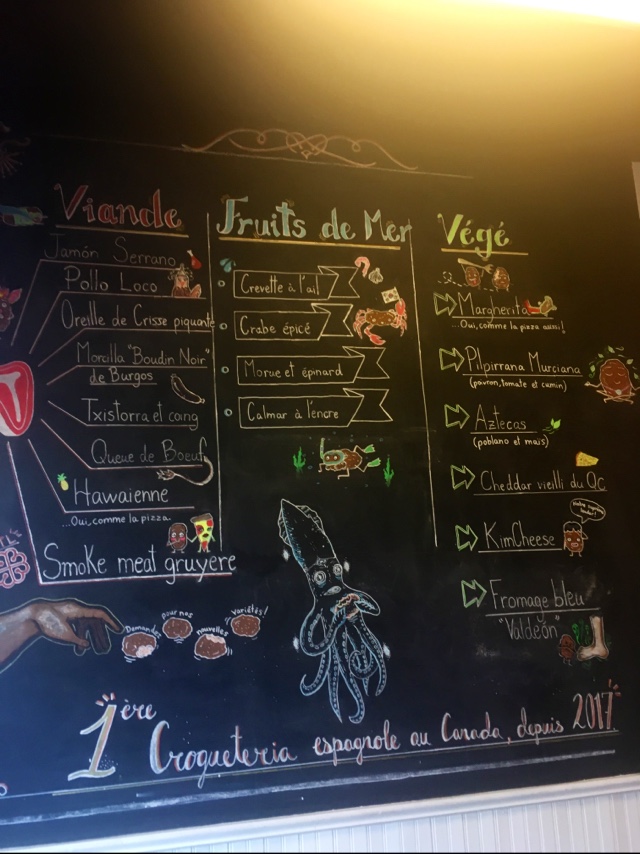 Viande
Jamón Serrano
Pollo Loco
Oreille de Crisse piquante
Morcilla "Boudin Noir"
de Burgos
Txistorra et coing
Queue de Boeuf
Hawaienne
...Oui, comme la pizza.
Smoke meat gruyère
Fruits de Mer
Crevette à l'ail
Crabe épicé
Morue et épinard
Calmar à l'encre
Végé
Margherita
...Oui, comme la pizza aussi!
Pilpirrana Murciana
(poivron, tomate et cumin)
Aztecas
(poblano et maïs)
Cheddar vieilli du QC
KimCheese
Fromage bleu
"Valdeón"
Demandez
pour nos
nouvelles
variétés!
1ère Croqueteria espagnole au Canada, depuis 2017